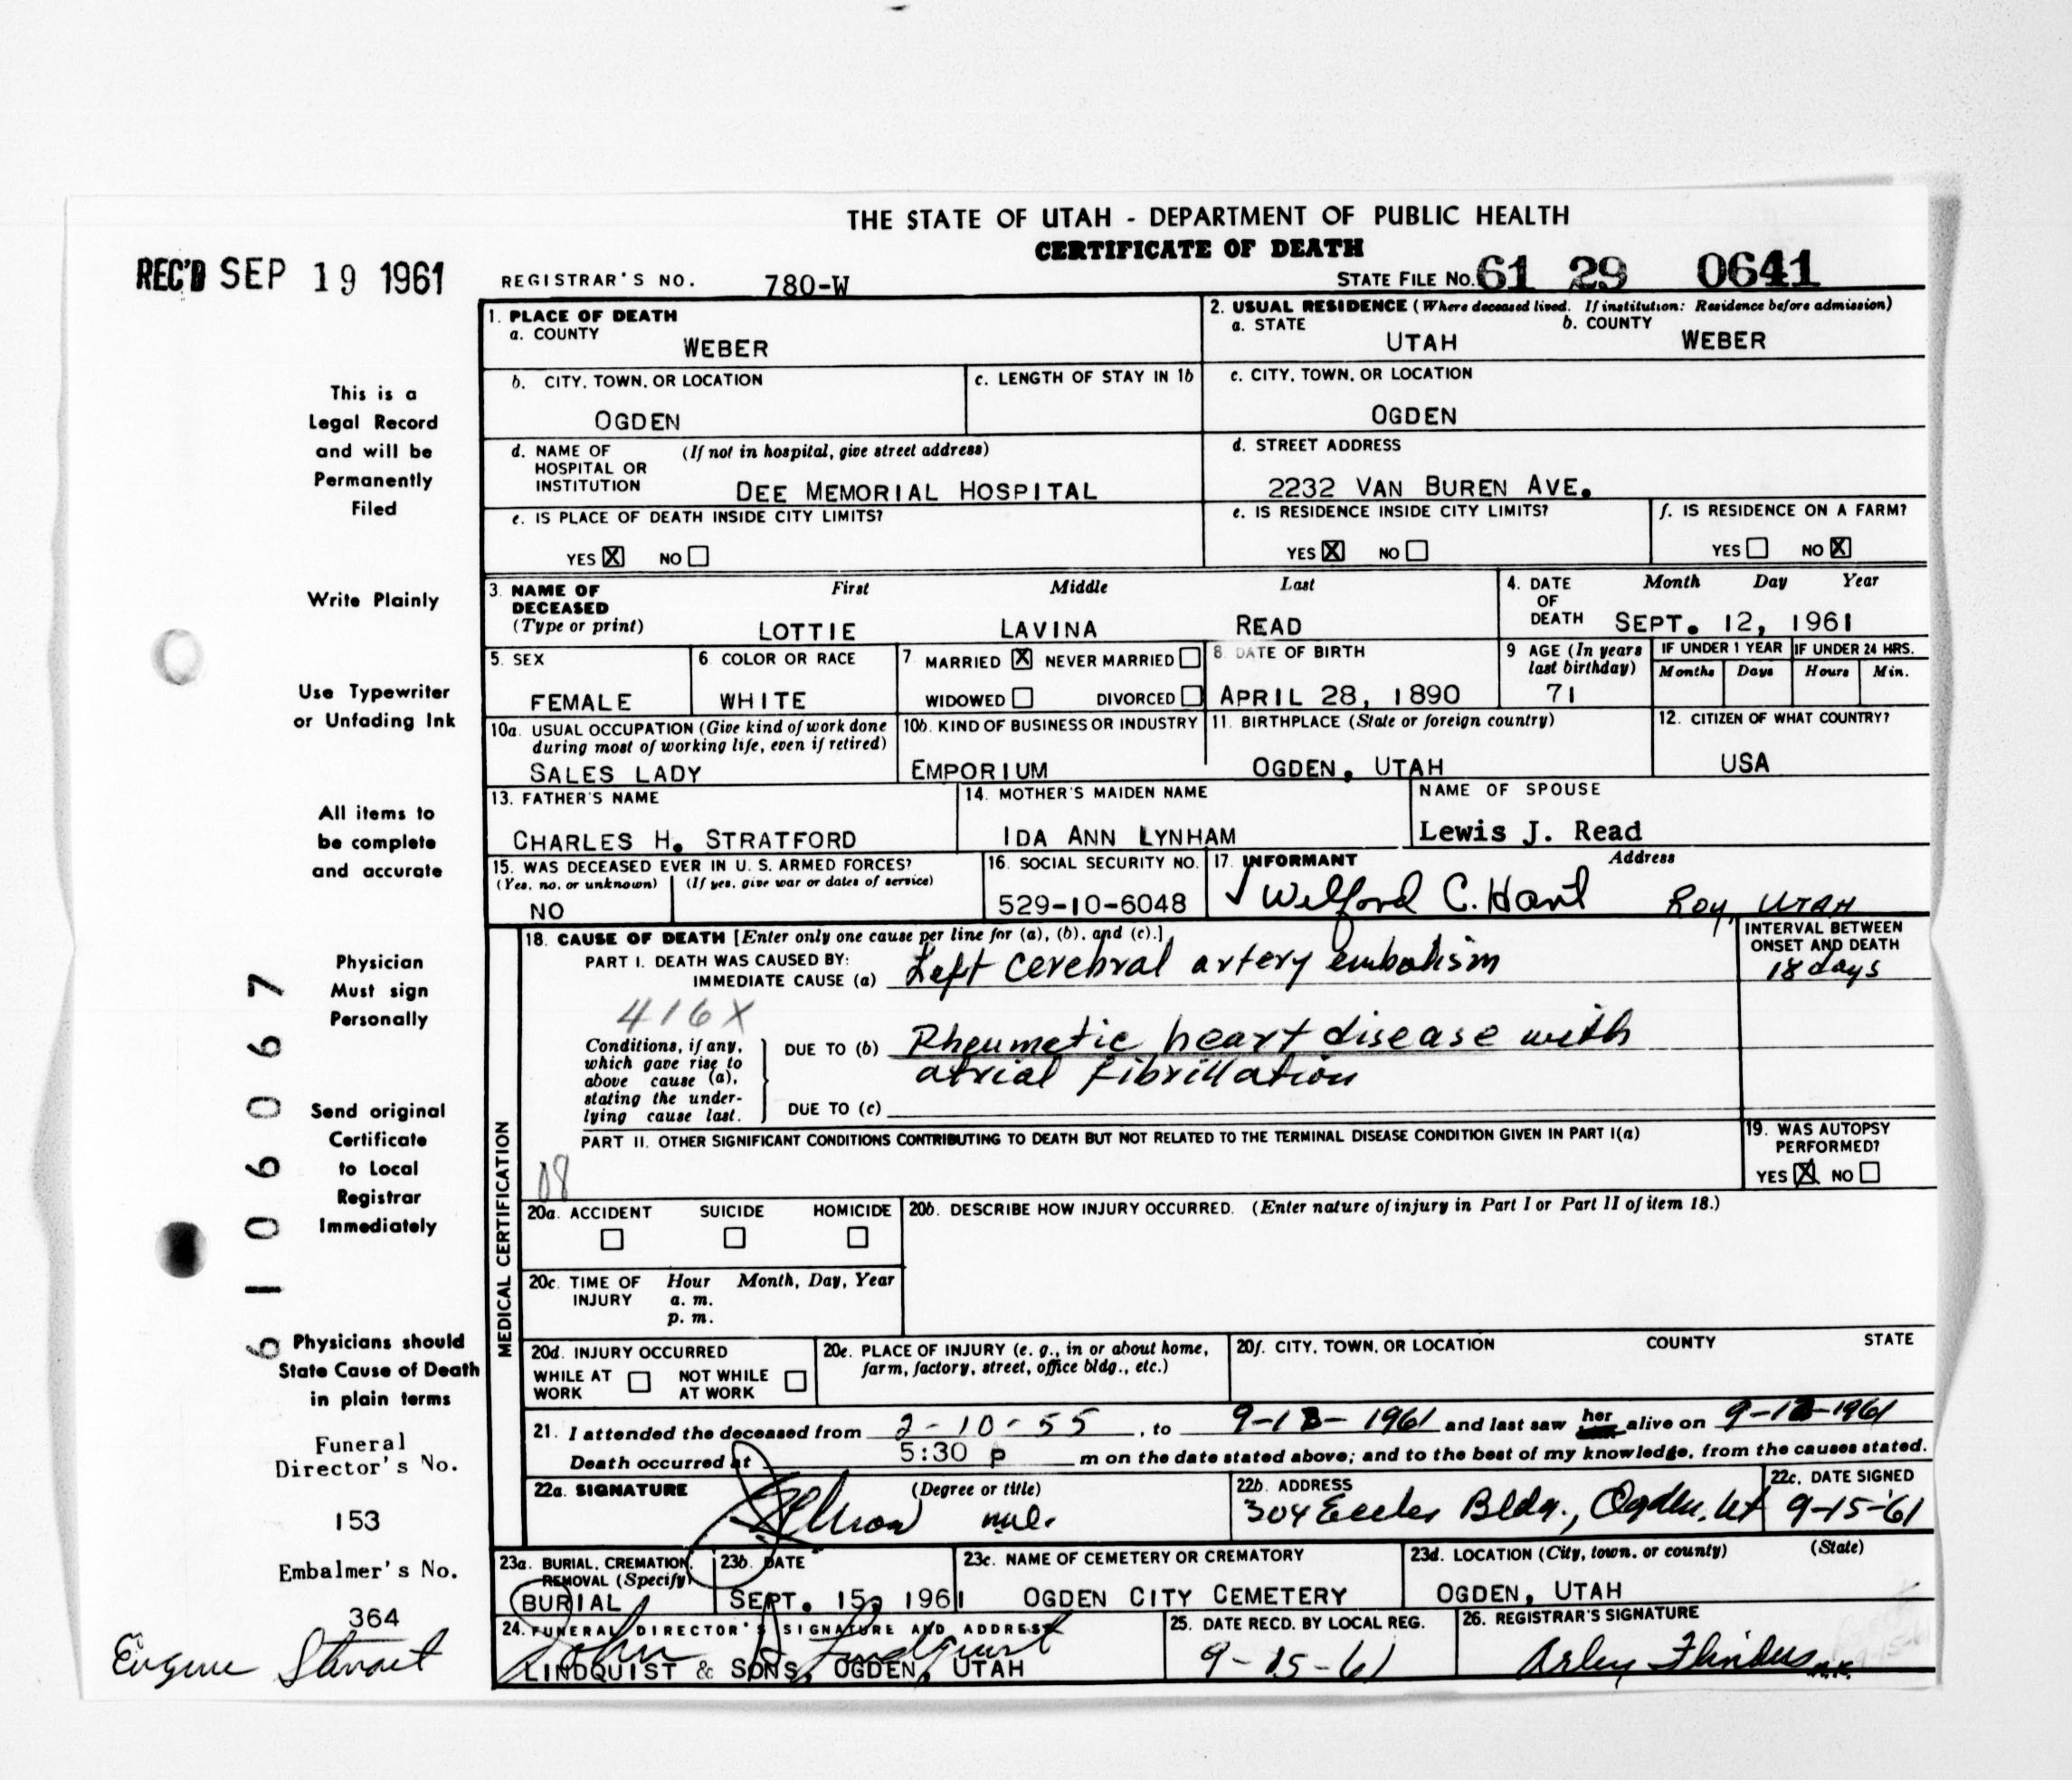 THE STATE OF UTAH - DEPARTMENT OF PUBLIC HEALTH
CERTIFICATE OF DEATH
REC'D SEP 19 1961
REGISTRAR'S NO. 780-W
STATE FILE NO. 61 29 0641
1. PLACE OF DEATH
a. COUNTY
WEBER
2. USUAL RESIDENCE (Where deceased lived. If institution: Residence before admission)
a. STATE b. COUNTY
UTAH WEBER
b. CITY, TOWN, OR LOCATION
OGDEN
c. LENGTH OF STAY IN 1b
c. CITY, TOWN, OR LOCATION
OGDEN
d. NAME OF (If not in hospital, give street address)
HOSPITAL OR
INSTITUTION DEE MEMORIAL HOSPITAL
d. STREET ADDRESS
2232 VAN BUREN AVE.
e. IS PLACE OF DEATH INSIDE CITY LIMITS?
YES X NO
e. IS RESIDENCE INSIDE CITY LIMITS?
YES X NO
f. IS RESIDENCE ON A FARM?
YES NO X
3. NAME OF First Middle Last
DECEASED
(Type or print) LOTTIE LAVINA READ
4. DATE Month Day Year
OF
DEATH SEPT. 12, 1961
5. SEX
FEMALE
6 COLOR OR RACE
WHITE
7 MARRIED X NEVER MARRIED
WIDOWED DIVORCED
8. DATE OF BIRTH
APRIL 28, 1890
9 AGE (In years
last birthday)
71
IF UNDER 1 YEAR IF UNDER 24 HRS.
Months Days Hours Min.
10a. USUAL OCCUPATION (Give kind of work done
during most of working life, even if retired)
SALES LADY
10b. KIND OF BUSINESS OR INDUSTRY
EMPORIUM
11. BIRTHPLACE (State or foreign country)
OGDEN, UTAH
12. CITIZEN OF WHAT COUNTRY?
USA
13. FATHER'S NAME
CHARLES H. STRATFORD
14. MOTHER'S MAIDEN NAME
IDA ANN LYNHAM
NAME OF SPOUSE
Lewis J. Read
15. WAS DECEASED EVER IN U. S. ARMED FORCES?
(Yes, no, or unknown) (If yes, give war or dates of service)
NO
16. SOCIAL SECURITY NO.
529-10-6048
17. INFORMANT Address
Welford C. Hart Roy, UTAH
18. CAUSE OF DEATH [Enter only one cause per line for (a), (b), and (c).]
PART I. DEATH WAS CAUSED BY:
IMMEDIATE CAUSE (a) Left cerebral artery embolism
INTERVAL BETWEEN
ONSET AND DEATH
18 days
416X
Conditions, if any,
which gave rise to
above cause (a),
stating the under-
lying cause last.
DUE TO (b) Rheumatic heart disease with
atrial fibrillation
DUE TO (c)
PART II. OTHER SIGNIFICANT CONDITIONS CONTRIBUTING TO DEATH BUT NOT RELATED TO THE TERMINAL DISEASE CONDITION GIVEN IN PART I(a)
08
19. WAS AUTOPSY
PERFORMED?
YES X NO
20a. ACCIDENT SUICIDE HOMICIDE
20b. DESCRIBE HOW INJURY OCCURRED. (Enter nature of injury in Part I or Part II of item 18.)
20c. TIME OF Hour Month, Day, Year
INJURY a. m.
p. m.
20d. INJURY OCCURRED
WHILE AT NOT WHILE
WORK AT WORK
20e. PLACE OF INJURY (e. g., in or about home,
farm, factory, street, office bldg., etc.)
20f. CITY, TOWN, OR LOCATION COUNTY STATE
21. I attended the deceased from 2-10-55, to 9-12-1961 and last saw her alive on 9-12-1961
Death occurred at 5:30 p m on the date stated above; and to the best of my knowledge, from the causes stated.
22a. SIGNATURE (Degree or title)
22b. ADDRESS
304 Eccles Bldg., Ogden, Ut
22c. DATE SIGNED
9-15-61
23a. BURIAL, CREMATION,
REMOVAL (Specify)
BURIAL
23b. DATE
SEPT. 15, 1961
23c. NAME OF CEMETERY OR CREMATORY
OGDEN CITY CEMETERY
23d. LOCATION (City, town, or county) (State)
OGDEN, UTAH
24. FUNERAL DIRECTOR'S SIGNATURE AND ADDRESS
John A Lindquist
LINDQUIST & SONS, OGDEN, UTAH
25. DATE RECD. BY LOCAL REG.
9-15-61
26. REGISTRAR'S SIGNATURE
Arley Flinders
MEDICAL CERTIFICATION
This is a
Legal Record
and will be
Permanently
Filed
Write Plainly
Use Typewriter
or Unfading Ink
All items to
be complete
and accurate
Physician
Must sign
Personally
Send original
Certificate
to Local
Registrar
Immediately
Physicians should
State Cause of Death
in plain terms
Funeral
Director's No.
153
Embalmer's No.
364
Eugene Stewart
6106067